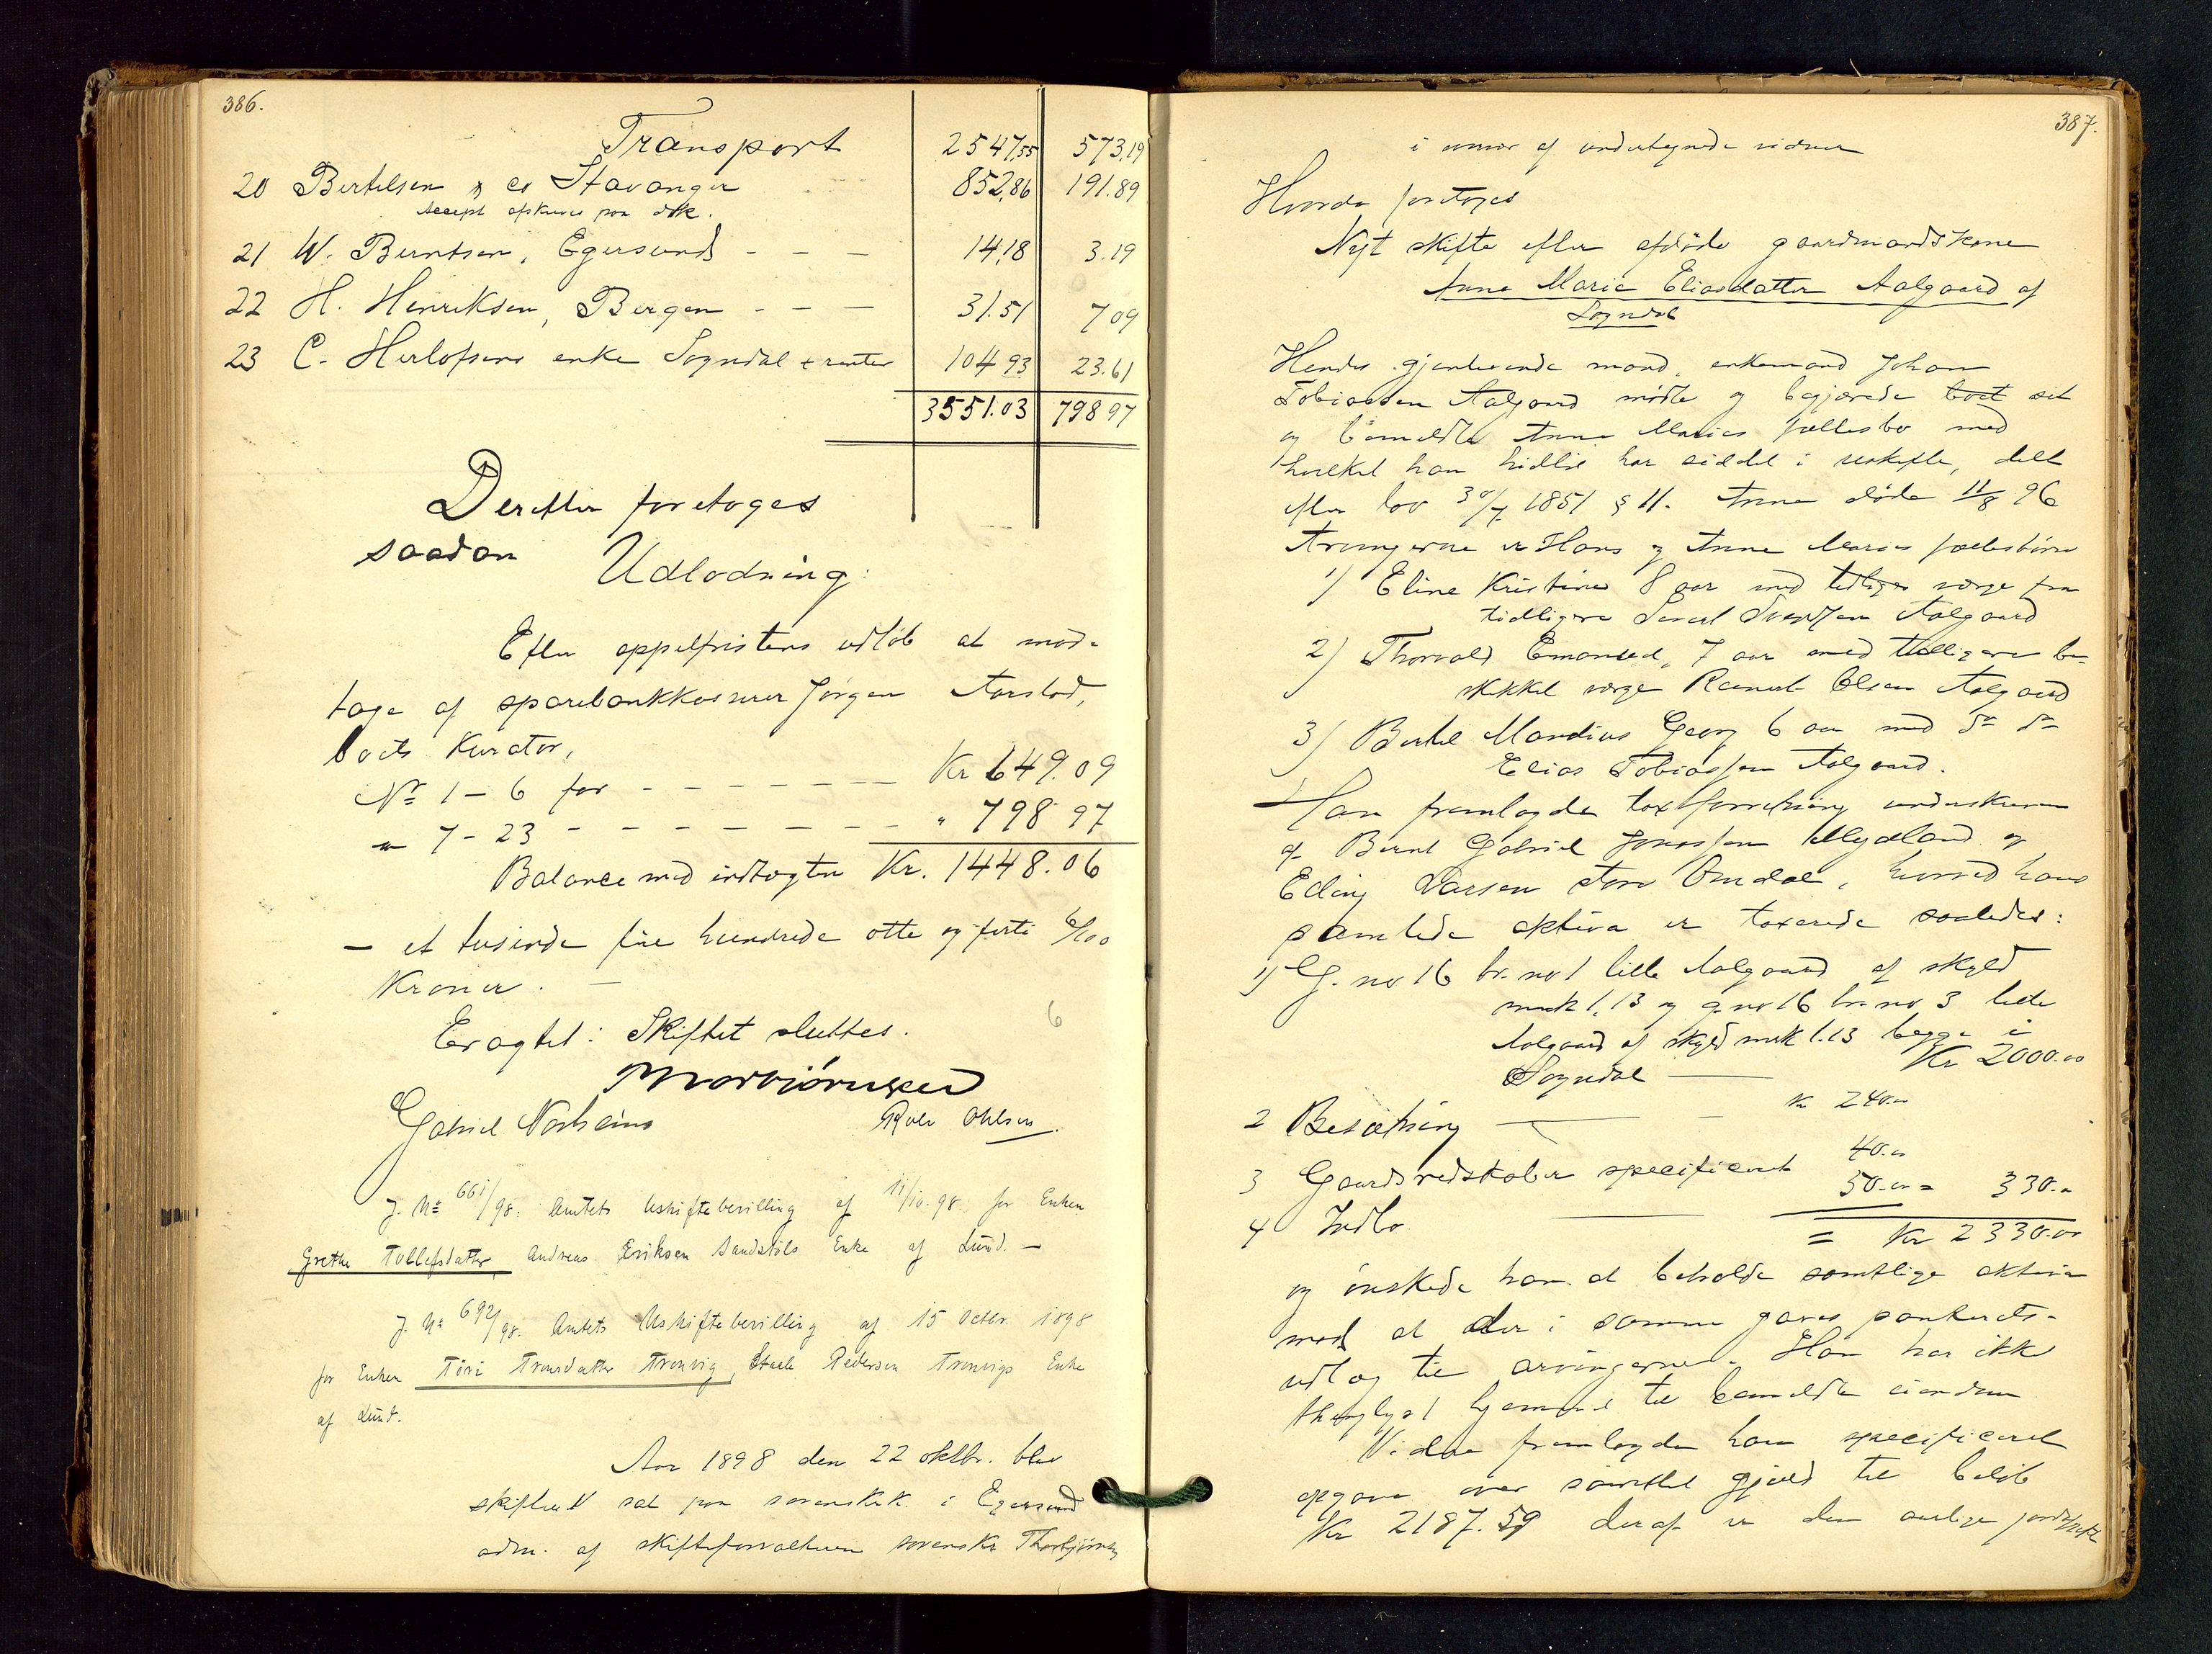 386.
Transport 2547,55 573,19
20 Bertelsen & co Stavanger 852,86 191.89
Accept afskrives paa dok.
21 W. Berntsen, Egersund - - - 14,18 3.19
22 H. Henriksen, Bergen - - - 31.51 7 09
23 C. Herlofsens enke Sogndal + renter 104 93 23.61
3551.03 798 97
Derefter foretoges
saadan Udlodning:
Efter appelfristens udløb at mod-
tage af sparebankkasserer Jørgen Aarstad,
boets Kurator,
No 1 - 6 for - - - - - - - Kr 649.09
" 7 - 23 - - - - - - - - " 798 97
Balance med indtægten Kr. 1448.06
- et tusinde fire hundrede otte og førti 6/100
Kroner. -
Eragtet: Skiftet sluttes.
6
Thorbjørnsen
Gabriel Norheim Rolv Ohlsen.
J. No 661/98. Amtets Uskiftebevilling af 11/10.98 for Enken
Grethe Tollefsdatter, Andreas Eriksen Sandstøls Enke af Lund. -
J. No 692/98. Amtets Uskiftebevilling af 15 Octbr. 1898
for Enken Tøri Tronsdatter Tronvig, Staale Pedersen Tronvigs Enke
af Lund.
Aar 1898 den 22 oktbr. blev
skifteret sat paa sorenskk. i Egersund
adm. af skifteforvalteren sorenskr Thorbjørnsen
387.
i nærvær af undertegnede vidner
Hvorda foretoges
Nyt skifte efter afdøde gaardmandskone
Anne Marie Eliasdatter Aalgaard af
Sogndal
Hendes gjenlevende mand, enkemand Johan
Tobiassen Aalgaard mødte og begjærede boet sit
og bemeldte Anne Maries fællesbo med
hvilket han hidtil har siddet i uskifte, delt
efter lov 30/7 1851 § 11. Anne døde 11/8 96
Arvingerne er Hans og Anne Maries fællesbørn
1) Eline Kristine 8 aar med tidligere værge fra
tidligere Sivert Svendsen Aalgaard
2) Thorvald Emanuel, 7 aar med tidligere be-
skikket værge Reinert Olsen Aalgaard
3) Bertel Mandius Georg 6 aar med do do
Elias Tobiassen Aalgaard.
Han fremlagde taxtforretning underskreven
af Bernt Gabriel Jonassen Mydland og
Edling Larsen store Omdal, hvorved hans
samlede aktiva er taxerede saaledes:
1) G. no 16 br. no 1 lille Aalgaard af skyld
mark 1,13 og g. no 16 br. no 3 lille
Aalgaard af skyld mark 1.13 begge i
Sogndal — Kr 2000.00
2 Besætning — - kr 240.00
3 Gaardsredskaber specificeret 40.00
4 Indbo — 50.00 = 330.00
= Kr 2330.00
og ønskede han at beholde samtlige aktiva
mod at der i samme gaves panterets-
udlæg til arvingerne. Han har ikke
thinglyst hjemmel til bemeldte eiendom
Videre fremlagde han specificeret
opgave over samtlet gjæld til beløb
Kr 2187.59 deraf er den aarlige